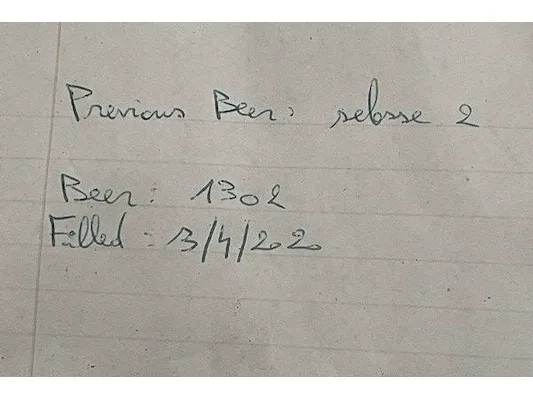 Previous Beer: sebosse 2
Beer: 1302
Filled: 3/4/2020